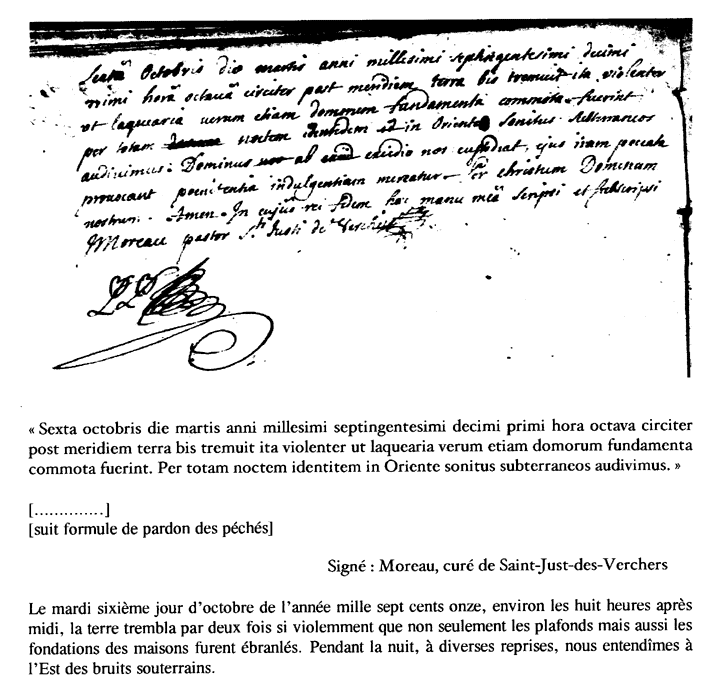 Sexta Octobris die martis anni millesimi septingentesimi decimi
primi horâ octavâ circiter post meridiem terra bis tremuit ita violenter
ut laquearia verum etiam domorum fundamenta commota fuerint
per totam noctem in Oriente sonitus subterraneos
audivimus. Dominus ab excidio nos custodiat, ejus iram peccata
provocant poenitentia indulgentiam mereatur. Per christum Dominum
nostrum. Amen. In cujus rei fidem hac manu meâ scripsi et subscripsi
Moreau pastor Sti Justi de Verchijs
« Sexta octobris die martis anni millesimi septingentesimi decimi primi hora octava circiter
post meridiem terra bis tremuit ita violenter ut laquearia verum etiam domorum fundamenta
commota fuerint. Per totam noctem identitem in Oriente sonitus subterraneos audivimus. »
[..............]
[suit formule de pardon des péchés]
Signé : Moreau, curé de Saint-Just-des-Verchers
Le mardi sixième jour d'octobre de l'année mille sept cents onze, environ les huit heures après
midi, la terre trembla par deux fois si violemment que non seulement les plafonds mais aussi les
fondations des maisons furent ébranlés. Pendant la nuit, à diverses reprises, nous entendîmes à
l'Est des bruits souterrains.